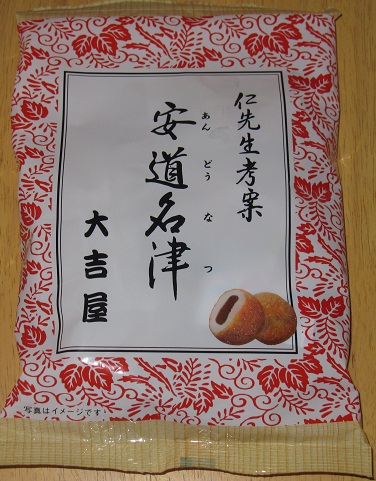 仁先生考案
安道名津
あんどうなつ
大吉屋
写真はイメージです